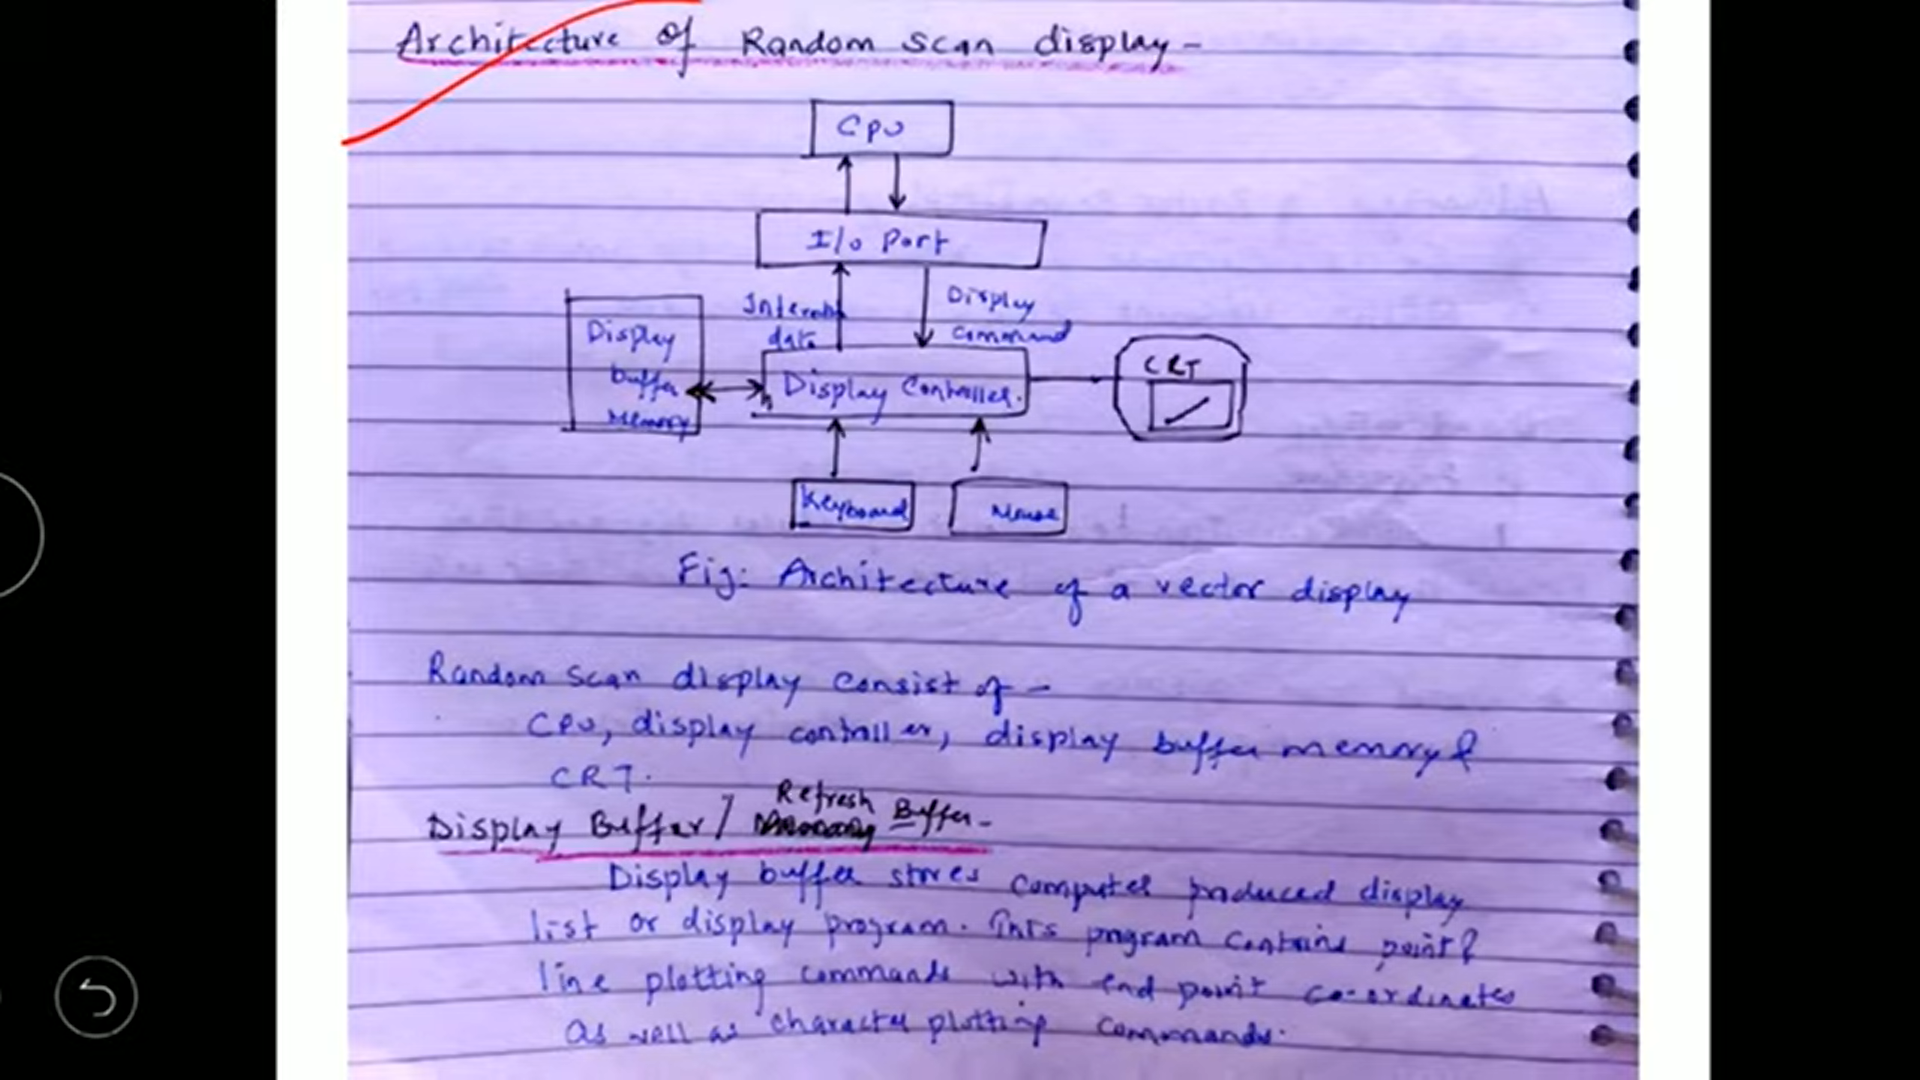 Architecture of Random Scan display-
CPU
I/o Port
Display
data
command
Display
buffer
Memory
CRT
Display Controller.
Keyboard
Mouse
Fig: Architecture of a vector display
Random Scan display consist of -
CPU, display controller, display buffer memory &
CRT.
Refresh
Display Buffer / Buffer-
Display buffer stores computer produced display
list or display program. This program contains point &
line plotting commands with end point co-ordinates
as well as character plotting commands.